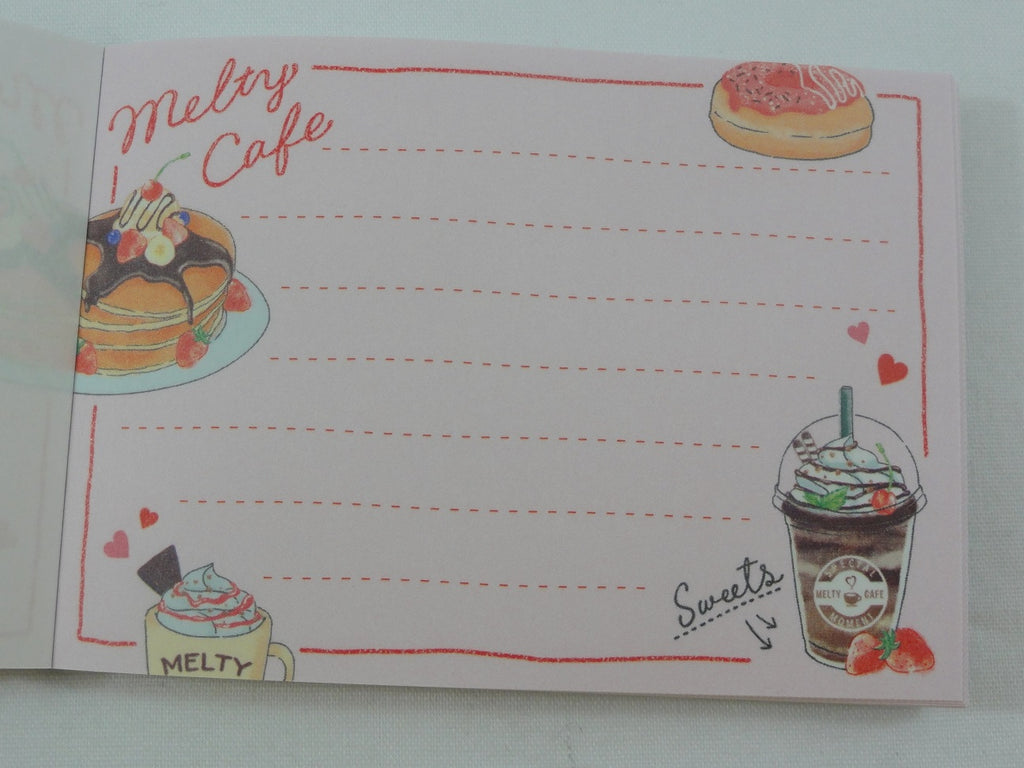 Melty
Cafe
Sweets
SPECIAL
MELTY CAFE
MOMENT
MELTY